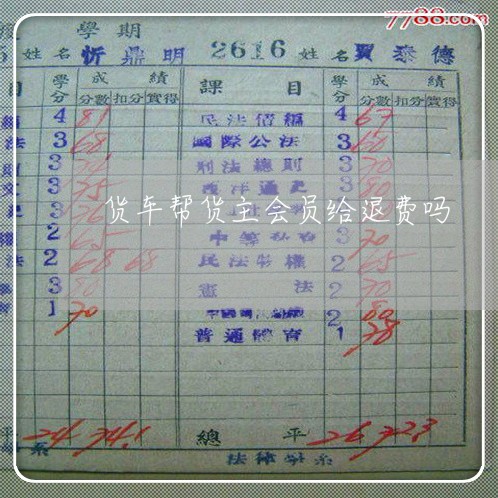 7788.com
學期
5 姓名 忻鼎明 2616 姓名 賈泰德
目 學分 成績 課目 學分 成績
分數 扣分 實得 分數 扣分 實得
4 81 民法債編 4 67
法 3 68 國際公法 3 60
則 3 刑法總則 3 70
文 3 75 西洋通史 3 80
史 3 76 3
權 2 65 中等 3 70
法 2 68 68 民法物權 2 65
3 80 憲法 2 70
育 1 70 中國 2 80
普通體育 1 78
货车帮货主会员给退费吗
平 24 74.1 總平 26 72.3
系 法律學系